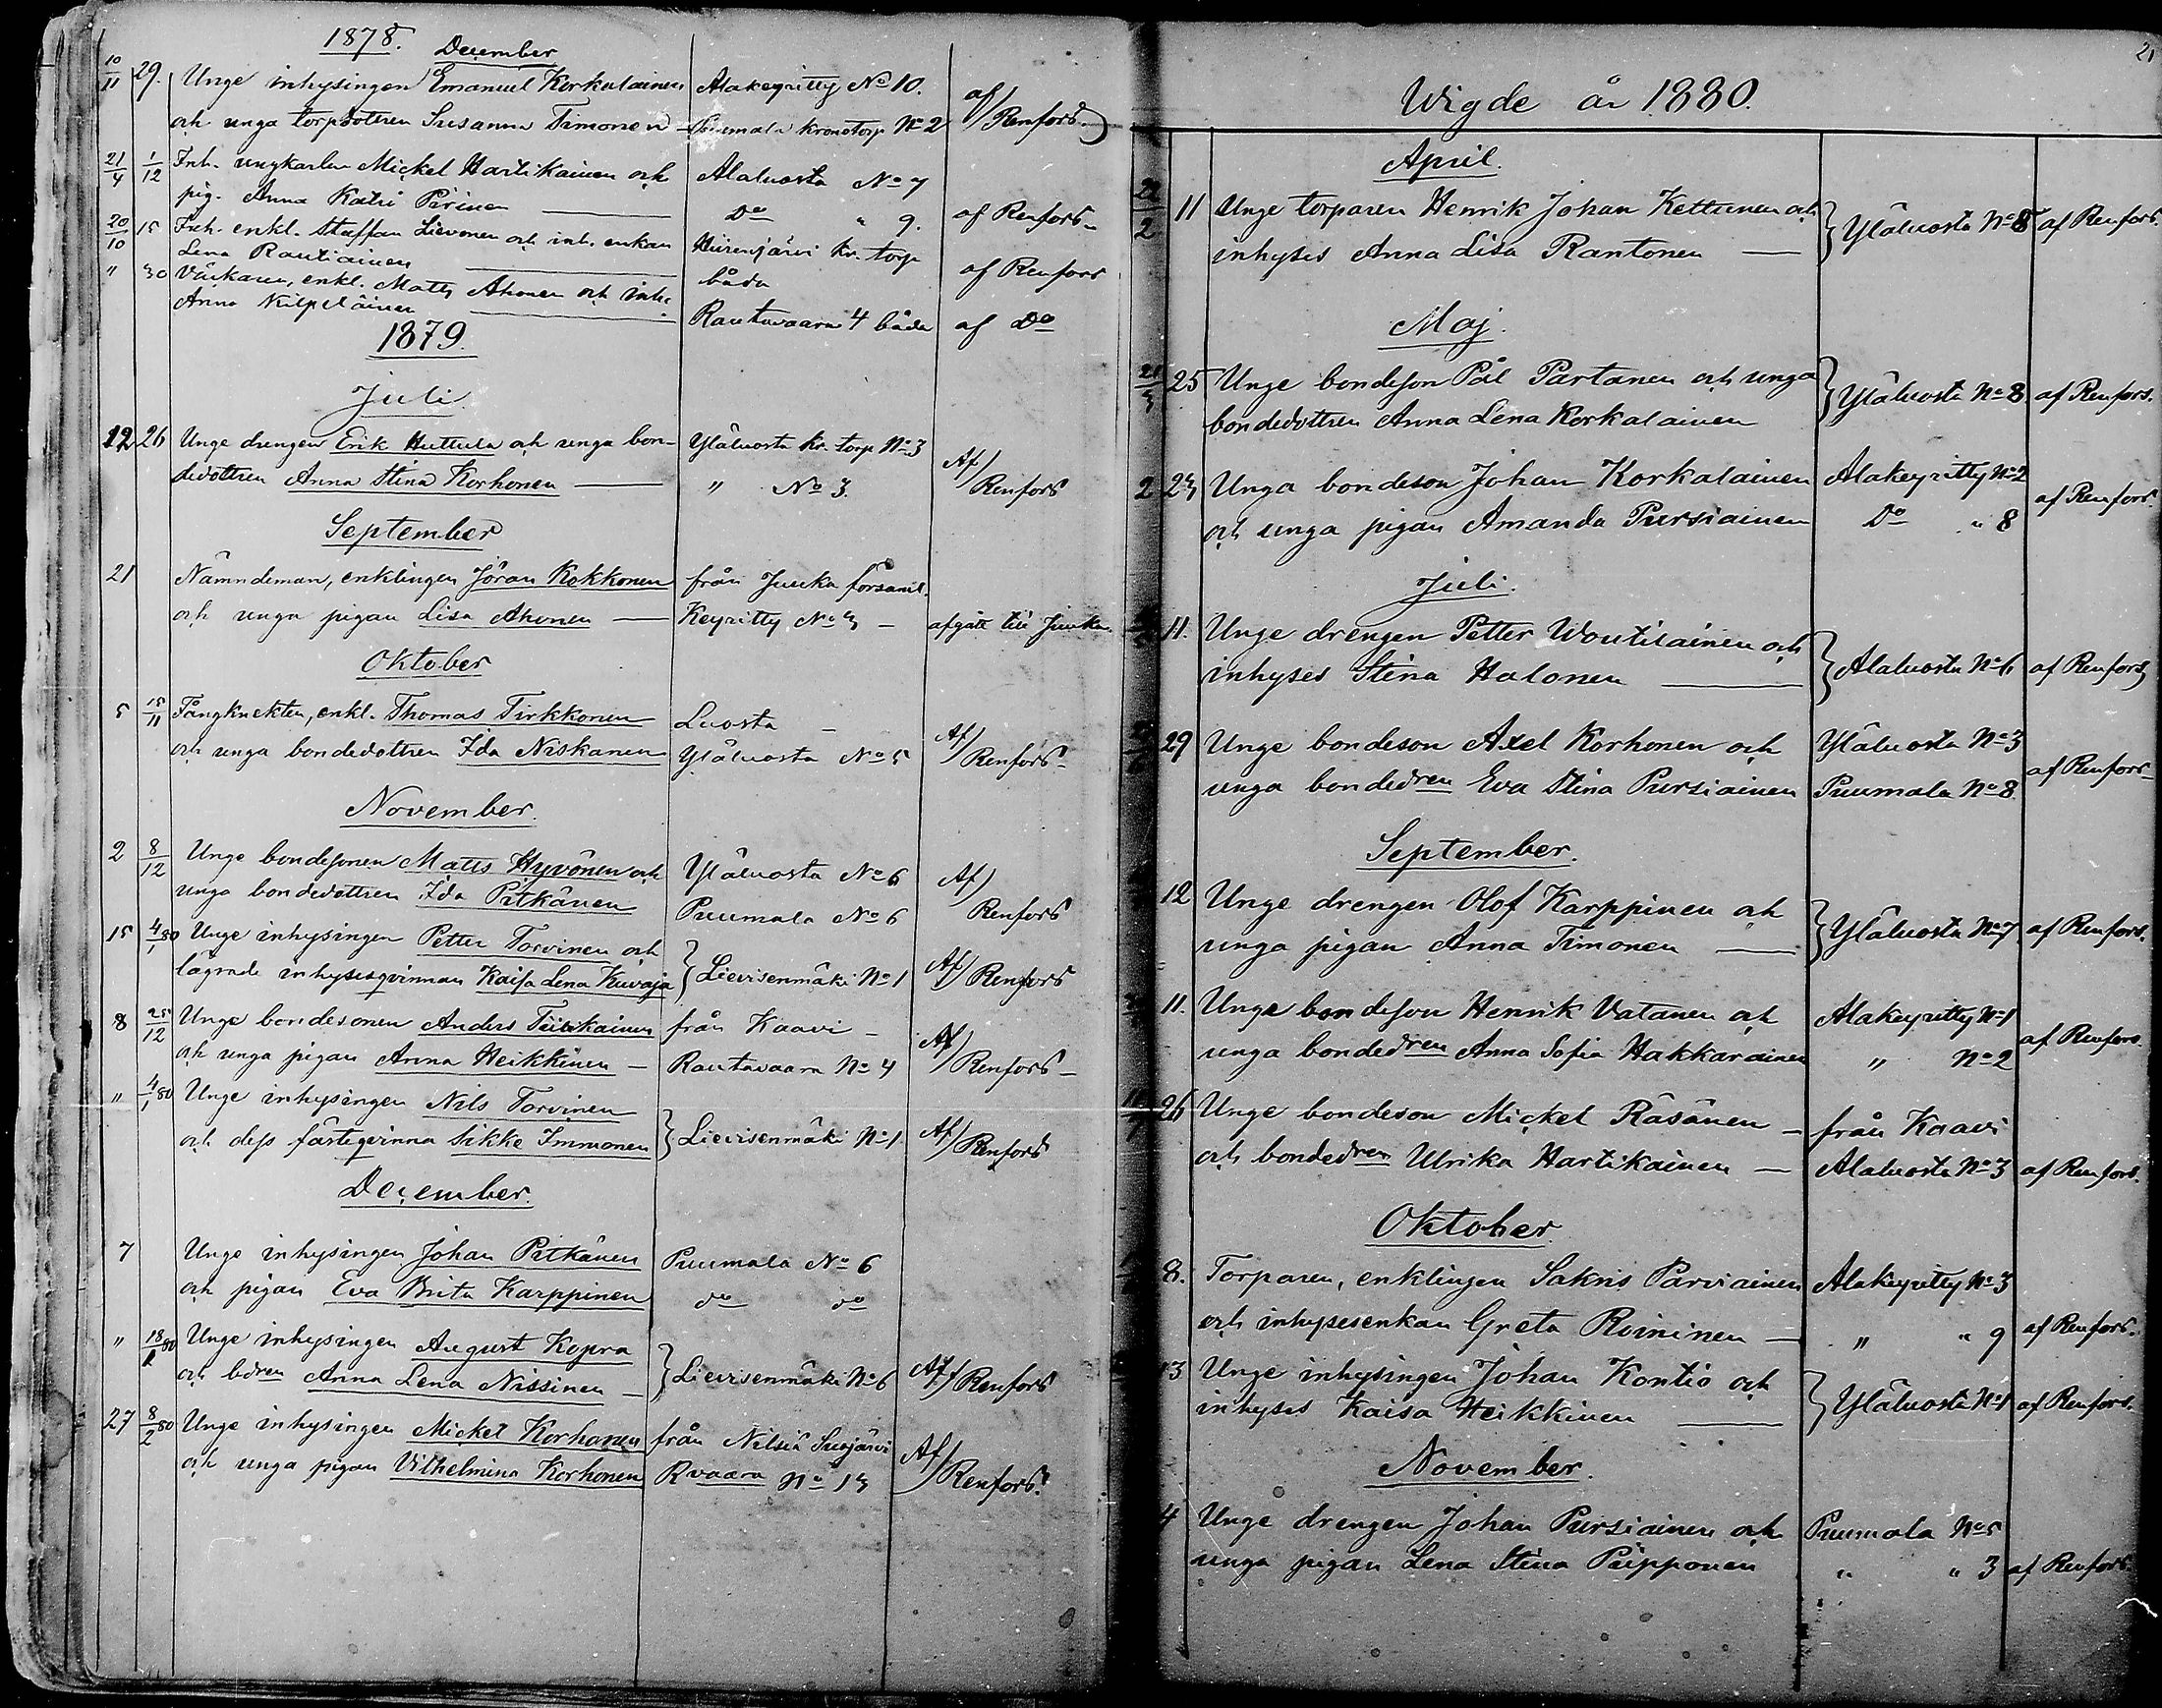 1878.
December
10/11 29. Unge inhysingen Emanuel Korkalainen Alakeyritty No 10. af
och unga torpdottren Susanna Timonen - Puumala kronotorp No 2 Renfors.
21/4 1/12 Inh. ungkarlen Mickel Hartikainen och Alaluosta No 7
pig. Anna Katri Pirinen Do " 9. af Renfors.
20/10 15 Inh. enkl. Staffan Lievonen och inh. enkan Hiirenjärvi kr. torp
Lena Rautiainen båda af Renfors
" 30 enkl. Matts Ahonen och inh.
Anna Kilpeläinen Rautavaara 4 båda af Do
1879.
Juli.
12 26 Unge drengen Erik Huttula och unga bon- Yläluosta kr. torp No 3 Af
dedottren Anna Stina Korhonen " No 3. Renfors
September
21 Nämndeman, enklingen Jöran Kokkonen från Juuka församl.
och unga pigan Lisa Ahonen Keyritty No 5 - afgått till Juuka.
Oktober
5 15/11 Fångknekten, enkl. Thomas Tirkkonen Luosta - Af
och unga bondedottren Ida Niskanen Yläluosta No 5 Renfors.
November.
2 8/12 Unge bondesonen Matts Hyvönen och Yläluosta No 6 Af
unga bondedottren Ida Pitkänen Puumala No 6 Renfors
15 4/1 80 Unge inhysingen Petter Torvinen och
lägrade inhysesqvinnan Kaisa Lena Kuvaja } Lievisenmäki No 1 Af Renfors
8 25/12 Unge bondesonen Anders Tiirikainen från Kaavi - Af
och unga pigan Anna Heikkinen - Rautavaara No 4 Renfors.
" 4/1 80 Unge inhysingen Nils Torvinen
och dess fästeqvinna Sikke Immonen } Lievisenmäki No 1. Af Renfors
December.
7 Unge inhysingen Johan Pitkänen Puumala No 6
och pigan Eva Brita Karppinen do do
" 18/1 80 Unge inhysingen August Kopra
och bdren Anna Lena Nissinen - } Lievisenmäki No 6 Af Renfors
27 8/2 80 Unge inhysingen Mickel Korhonen från Nilsiä Suojärvi Af
och unga pigan Vilhelmina Korhonen Rvaara No 13 Renfors.
21
Wigde år 1880.
April.
22/2 11 Unge torparen Henrik Johan Kettunen och
inhyses Anna Lisa Rantonen } Yläluosta No 8 af Renfors.
Maj.
25 Unge bondeson Pål Partanen och unga
bondedottren Anna Lena Korkalainen } Yläluosta No 8 af Renfors.
2 23 Unga bondeson Johan Korkalainen Alakeyritty No 2
och unga pigan Amanda Pursiainen Do " 8 af Renfors.
Juli.
11. Unge drengen Petter Woutilainen och
inhyses Stina Halonen } Alaluosta No 6 af Renfors
29 Unge bondeson Axel Korhonen och Yläluosta No 3
unga bondedren Eva Stina Pursiainen Puumala No 8. af Renfors
September.
12 Unge drengen Olof Karppinen och
unga pigan Anna Timonen } Yläluosta No 7 af Renfors.
11. Unge bondeson Henrik Vatanen och Alakeyritty No 1
unga bondedren Anna Sofia Hakkarainen " No 2 af Renfors.
26 Unge bondeson Mickel Räsänen - från Kaavi
och bondedren Ulrika Hartikainen - Alaluosta No 3 af Renfors.
Oktober.
8. Torparen, enklingen Sakris Parviainen Alakeyritty No 3
och inhysesenkan Greta Roininen - " " 9 af Renfors.
13 Unge inhysingen Johan Kontio och
inhyses Kaisa Heikkinen } Yläluosta No 1 af Renfors.
November.
4 Unge drengen Johan Pursiainen och Puumala No 5
unga pigan Lena Stina Piipponen " " 3 af Renfors.